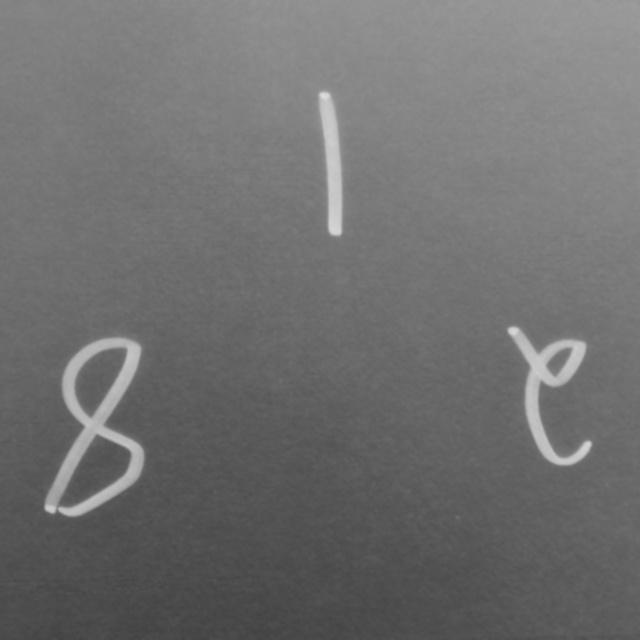 1
8 e